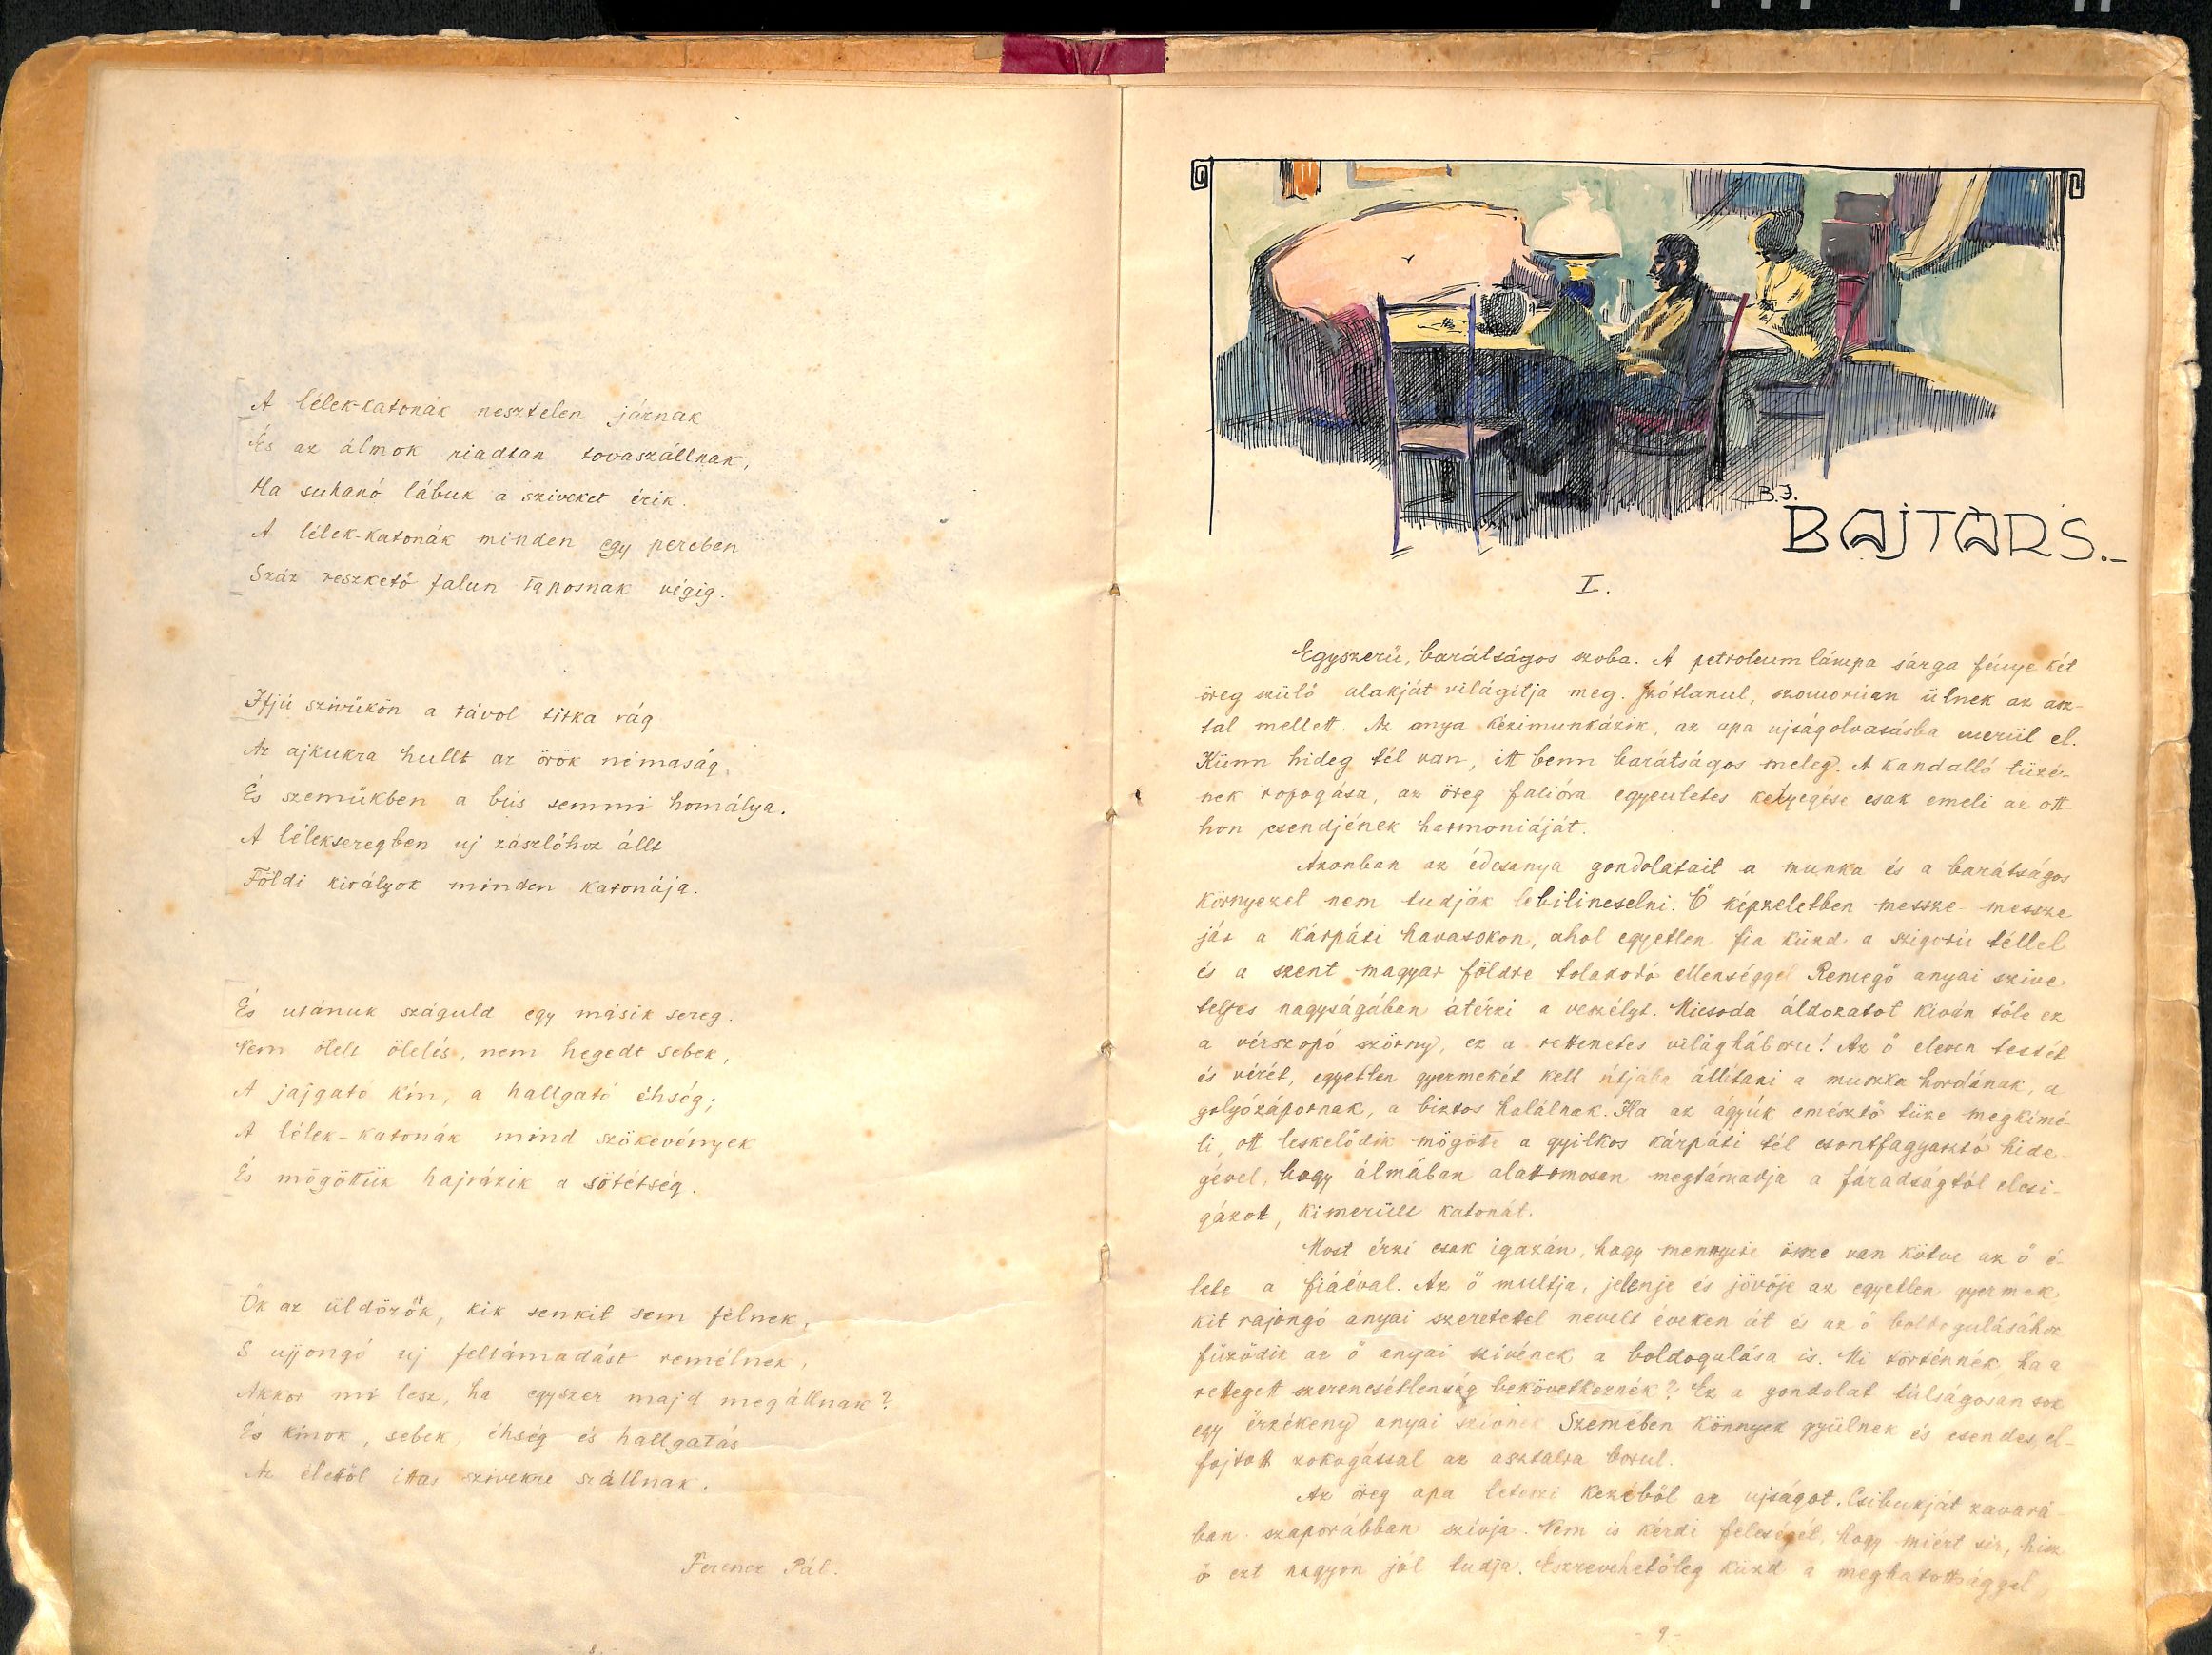 A lélek-katonák nesztelen járnak
És az álmok riadtan tovaszállnak,
Ha suhanó lábuk a sziveket érik.
A lélek-katonák minden egy percben
Száz reszkető falun taposnak végig.
Ifjú szivükön a távol titka rág
Az ajkukra hullt az örök némaság,
És szemükben a bús semmi homálya.
A lélekseregben uj zászlóhoz állt
Földi királyok minden katonája.
És utánuk száguld egy másik sereg.
Nem ölelt ölelés, nem hegedt sebek,
A jajgató kín, a hallgató éhség;
A lélek-katonák mind szökevények
És mögöttük hajrázik a sötétség.
Ők az üldözők, kik senkit sem félnek,
S ujjongó uj feltámadást remélnek,
Akkor mi lesz, ha egyszer majd megállnak?
És kínok, sebek, éhség és hallgatás
Az élettől ittas szivekre szállnak.
Ferencz Pál.
8.
B.J.
BAJTÁRS.-
I.
Egyszerü, barátságos szoba. A petroleum lámpa sárga fénye két
öreg szülő alakját világítja meg. Szótlanul, szomorúan ülnek az asz-
tal mellett. Az anya kézimunkázik, az apa ujságolvasásba merül el.
Künn hideg tél van, itt benn barátságos meleg. A kandalló tüzé-
nek ropogása, az öreg falióra egyenletes ketyegése csak emeli az ott-
hon csendjének harmoniáját.
Azonban az édesanya gondolatait a munka és a barátságos
környezet nem tudják lebilincselni. Ő képzeletben messze- messze
jár a kárpáti havasokon, ahol egyetlen fia küzd a szigorú téllel
és a szent magyar földre tolakodó ellenséggel Remegő anyai szive
teljes nagyságában átérzi a veszélyt. Micsoda áldozatot kíván tőle ez
a vérszopó szörny, ez a rettenetes világháboru! Az ő eleven testét
és vérét, egyetlen gyermekét kell útjába állítani a muszka hordának, a
golyózápornak, a biztos halálnak. Ha az ágyúk emésztő tüze megkimé-
li, ott leskelődik mögötte a gyilkos kárpáti tél csontfagyasztó hide-
gével, hogy álmában alattomosan megtámadja a fáradságtól elcsi-
gázot, kimerült katonát.
Most érzi csak igazán, hogy mennyire össze van kötve az ő é-
lete a fiáéval. Az ő multja, jelenje és jövője az egyetlen gyermek
kit rajongó anyai szeretettel nevelt éveken át és az ő boldogulásához
fűződik az ő anyai szivének a boldogulása is. Mi történnék, ha a
rettegett szerencsétlenség bekövetkeznék? Ez a gondolat túlságosan sok
egy érzékeny anyai szivnek Szemében könnyek gyülnek és csendes, el-
fojtott zokogással az asztalra borul.
Az öreg apa leteszi kezéből az ujságot. Csibukját zavará-
ban szaporábban szívja. Nem is kérdi feleségét, hogy miért sír, hisz
ő ezt nagyon jól tudja. Észrevehetőleg küzd a meghatottsággal,
- 9 -